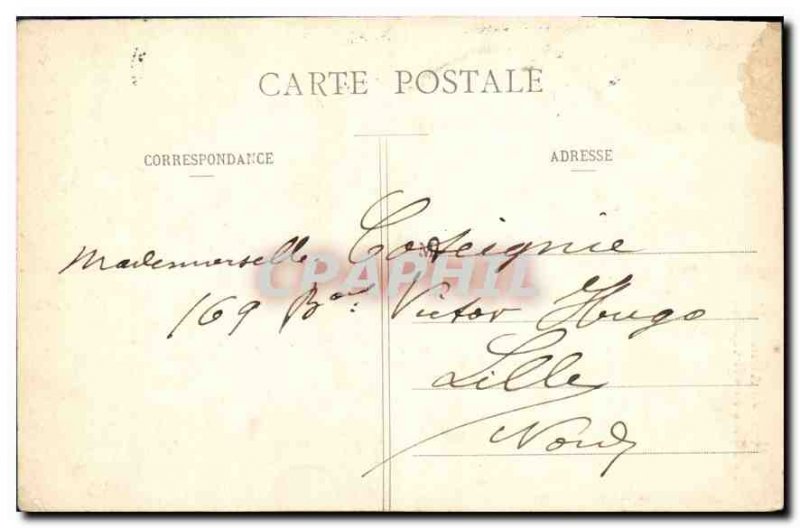 CARTE POSTALE
CORRESPONDANCE
ADRESSE
Mademoiselle Coteignie
CPAPHIL
169 Bard Victor Hugo
Lille
Nord